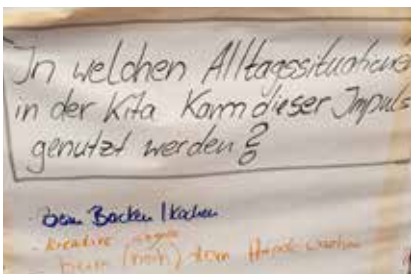 In welchen Alltagssituationen
in der Kita kann dieser Impuls
genutzt werden?
- beim Backen / Kochen
- kreative
beim (nach) dem Hände waschen